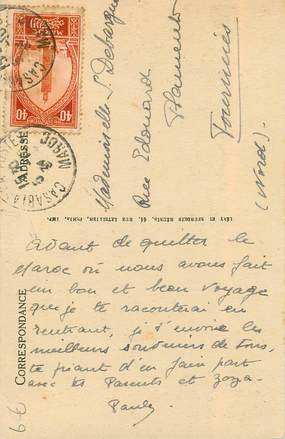 Avant de quitter le
Maroc où nous avons fait
un bon et beau voyage
que je te raconterai en
rentrant, je t'envoie les
meilleurs souvenirs de tous,
te priant d'en fair part
avec tes Parents et
Paule
CORRESPONDANCE
ADRESSE
LÉVY ET NEURDEIN RÉUNIS, 44, RUE LETELLIER, PARIS, IMP.
Mademoiselle S. Debarque
Rue Edouard Flament
Fourmies
(Nord).
MAROC
CASABLANCA
40 40